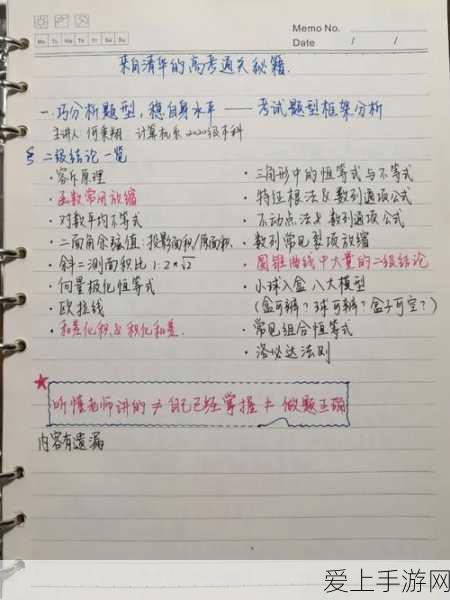 Memo No.
Mo Tu We Th Fr Sa Su
Date / /
来自清华的高考通关秘籍.
一.巧分析题型，稳自身水平 —— 考试题型框架分析
主讲人 何秉翔 计算机系2020级本科
二级结论一览
·容斥原理
·函数常用放缩
·对数平均不等式
·二面角余弦值：投影面积/原面积
·斜二测面积比 1:2*√2
·向量极化恒等式
·欧拉线
·和差化积&积化和差.
·三角形中的恒等式与不等式
·特征根法&数列通项公式
·不动点法&数列通项公式
·数列常见裂项放缩
·圆锥曲线中大量的二级结论
·小球入盒 八大模型
(盒可辨？球可辨？盒子可空？)
·常见组合恒等式
·洛必达法则
★
听懂老师讲的 ≠ 自己已经掌握 ≠ 做题正确
内容有遗漏
爱上手游网